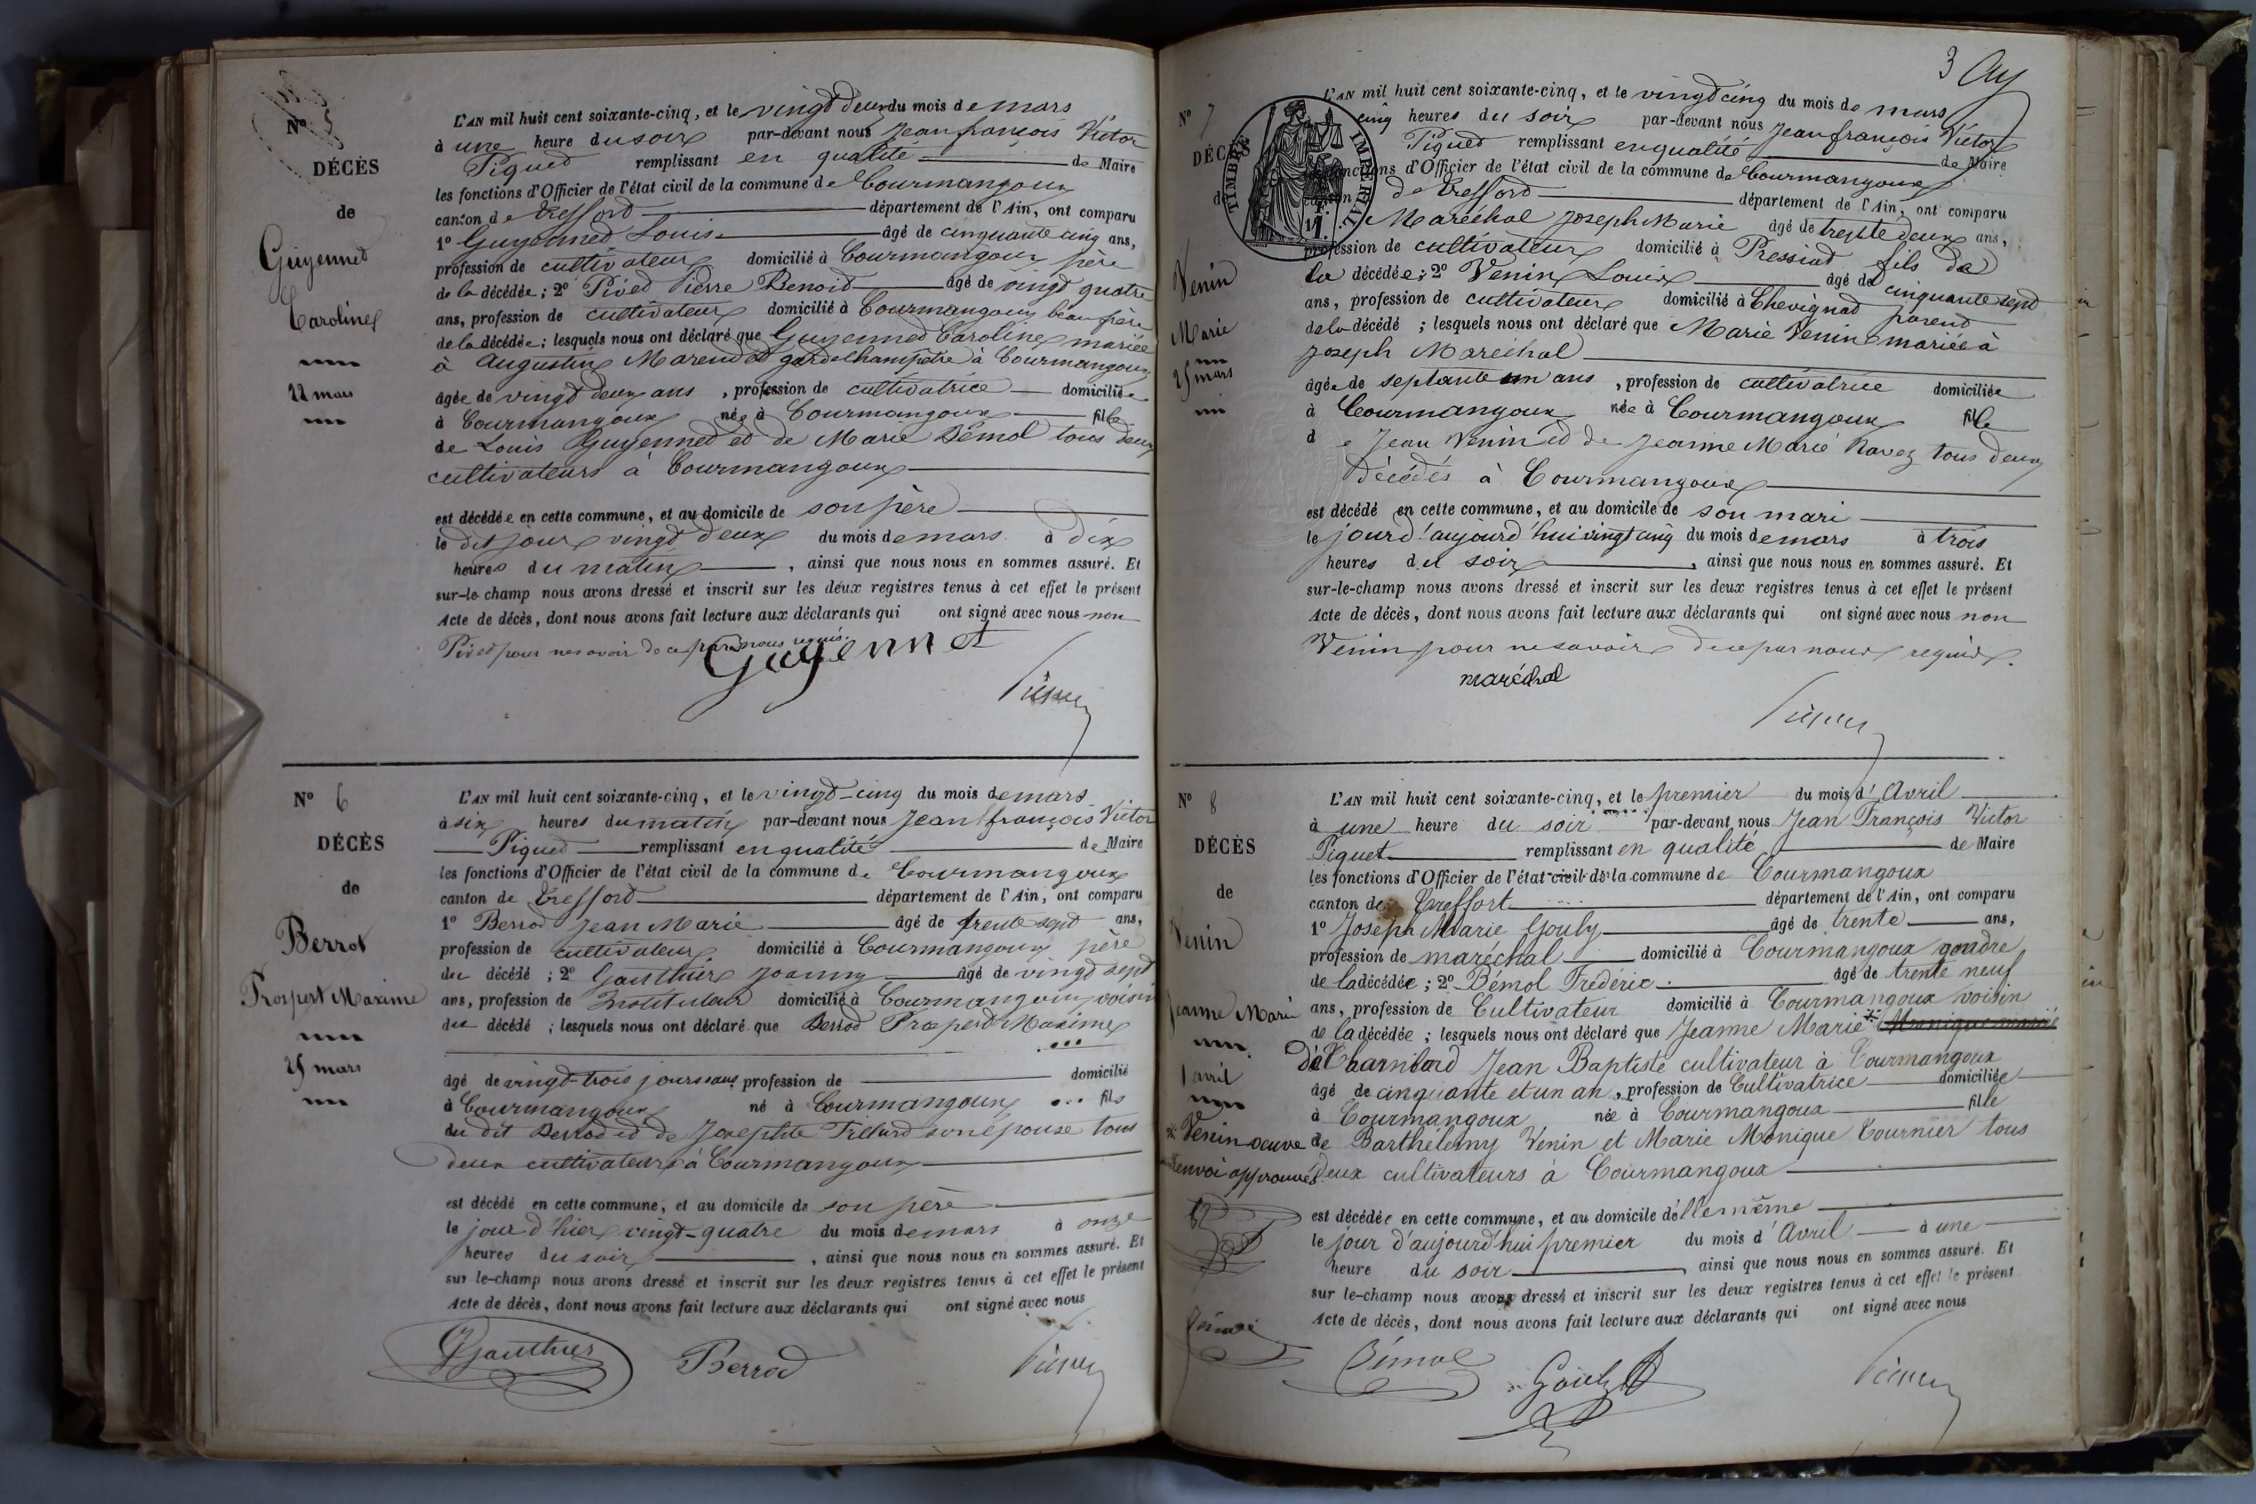 N° 5
DÉCÈS
de
Guyennet
Caroline
22 mars
L'AN mil huit cent soixante-cinq, et le vingt deux du mois de mars
à une heure du soir par-devant nous Jean françois Victor
Piquet remplissant en qualité de Maire
les fonctions d'Officier de l'état civil de la commune de Courmangoux
canton de Treffort département de l'Ain, ont comparu
1° Guyennet Louis âgé de cinquante cinq ans,
profession de cultivateur domicilié à Courmangoux père
de la décédée ; 2° Pivet Pierre Benoit âgé de vingt quatre
ans, profession de cultivateur domicilié à Courmangoux beau frère
de la décédée ; lesquels nous ont déclaré que Guyennet Caroline mariée
à Augustin Marendet garde champêtre à Courmangoux
âgée de vingt deux ans , profession de cultivatrice domiciliée
à Courmangoux née à Courmangoux fille
de Louis Guyennet et de Marie Bémol tous deux
cultivateurs à Courmangoux
est décédée en cette commune, et au domicile de son père
le dit jour vingt deux du mois de mars à dix
heures du matin , ainsi que nous nous en sommes assuré. Et
sur-le champ nous avons dressé et inscrit sur les deux registres tenus à cet effet le présent
Acte de décès, dont nous avons fait lecture aux déclarants qui ont signé avec nous non
Pivet pour ne savoir de ce par nous requis.
Guyennet
Piquet
N° 6
DÉCÈS
de
Berrot
Prospert Maxime
25 mars
L'AN mil huit cent soixante-cinq, et le vingt-cinq du mois de mars
à six heures du matin par-devant nous Jean françois Victor
Piquet remplissant en qualité de Maire
les fonctions d'Officier de l'état civil de la commune de Courmangoux
canton de Treffort département de l'Ain, ont comparu
1° Berrod Jean Marie âgé de trente sept ans,
profession de cultivateur domicilié à Courmangoux père
du décédé ; 2° Gauthier Joanny âgé de vingt sept
ans, profession de Instituteur domicilié à Courmangoux voisin
du décédé ; lesquels nous ont déclaré que Berrod Prosperd Maxime
âgé de vingt-trois jours sans profession de domicilié
à Courmangoux né à Courmangoux fils
du dit Berrod et de Josephte son épouse tous
deux cultivateurs à Courmangoux
est décédé en cette commune, et au domicile de son père
le jour d'hier vingt-quatre du mois de mars à onze
heures du soir , ainsi que nous nous en sommes assuré. Et
sur le-champ nous avons dressé et inscrit sur les deux registres tenus à cet effet le présent
Acte de décès, dont nous avons fait lecture aux déclarants qui ont signé avec nous
Gauthier Berrod Piquet
3
N° 7
DÉCÈS
de
TIMBRE IMPÉRIAL
Venin
Marie
25 mars
L'AN mil huit cent soixante-cinq, et le vingt cinq du mois de mars
cinq heures du soir par-devant nous Jean françois Victor
Piquet remplissant en qualité de Maire
les fonctions d'Officier de l'état civil de la commune de Courmangoux
canton de Treffort département de l'Ain, ont comparu
Maréchal Joseph Marie âgé de trente deux ans,
profession de cultivateur domicilié à Pressiat fils de
la décédée ; 2° Venin Louis âgé de cinquante sept
ans, profession de cultivateur domicilié à Chevignat parent
de la décédé ; lesquels nous ont déclaré que Marie Venin mariée à
Joseph Maréchal
âgée de septante un ans , profession de cultivatrice domiciliée
à Courmangoux née à Courmangoux fille
de Jean Venin et de Jeanne Marie Navez tous deux
décédés à Courmangoux
est décédé en cette commune, et au domicile de son mari
le jourd'aujourd'hui vingt cinq du mois de mars à trois
heures du soir , ainsi que nous nous en sommes assuré. Et
sur-le-champ nous avons dressé et inscrit sur les deux registres tenus à cet effet le présent
Acte de décès, dont nous avons fait lecture aux déclarants qui ont signé avec nous non
Venin pour ne savoir de ce par nous requis.
maréchal
Piquet
N° 8
DÉCÈS
de
Venin
Jeanne Marie
1 avril
* Venin veuve
Renvoi approuvé
Bémol
L'AN mil huit cent soixante-cinq, et le premier du mois d'Avril
à une heure du soir par-devant nous Jean François Victor
Piquet remplissant en qualité de Maire
les fonctions d'Officier de l'état civil de la commune de Courmangoux
canton de Treffort département de l'Ain, ont comparu
1° Joseph Marie Gouly âgé de trente ans,
profession de maréchal domicilié à Courmangoux gendre
de la décédée ; 2° Bémol Frédéric âgé de trente neuf
ans, profession de Cultivateur domicilié à Courmangoux voisin
de la décédée ; lesquels nous ont déclaré que Jeanne Marie * Monique mariée
de Charnbard Jean Baptiste cultivateur à Courmangoux
âgé de cinquante et un an , profession de Cultivatrice domiciliée
à Courmangoux née à Courmangoux fille
de Barthélemy Venin et Marie Monique Cournier tous
deux cultivateurs à Courmangoux
est décédée en cette commune, et au domicile d'elle même
le jour d'aujourd'hui premier du mois d'Avril à une
heure du soir , ainsi que nous nous en sommes assuré. Et
sur le-champ nous avons dressé et inscrit sur les deux registres tenus à cet effet le présent
Acte de décès, dont nous avons fait lecture aux déclarants qui ont signé avec nous
Bémol Gouly Piquet